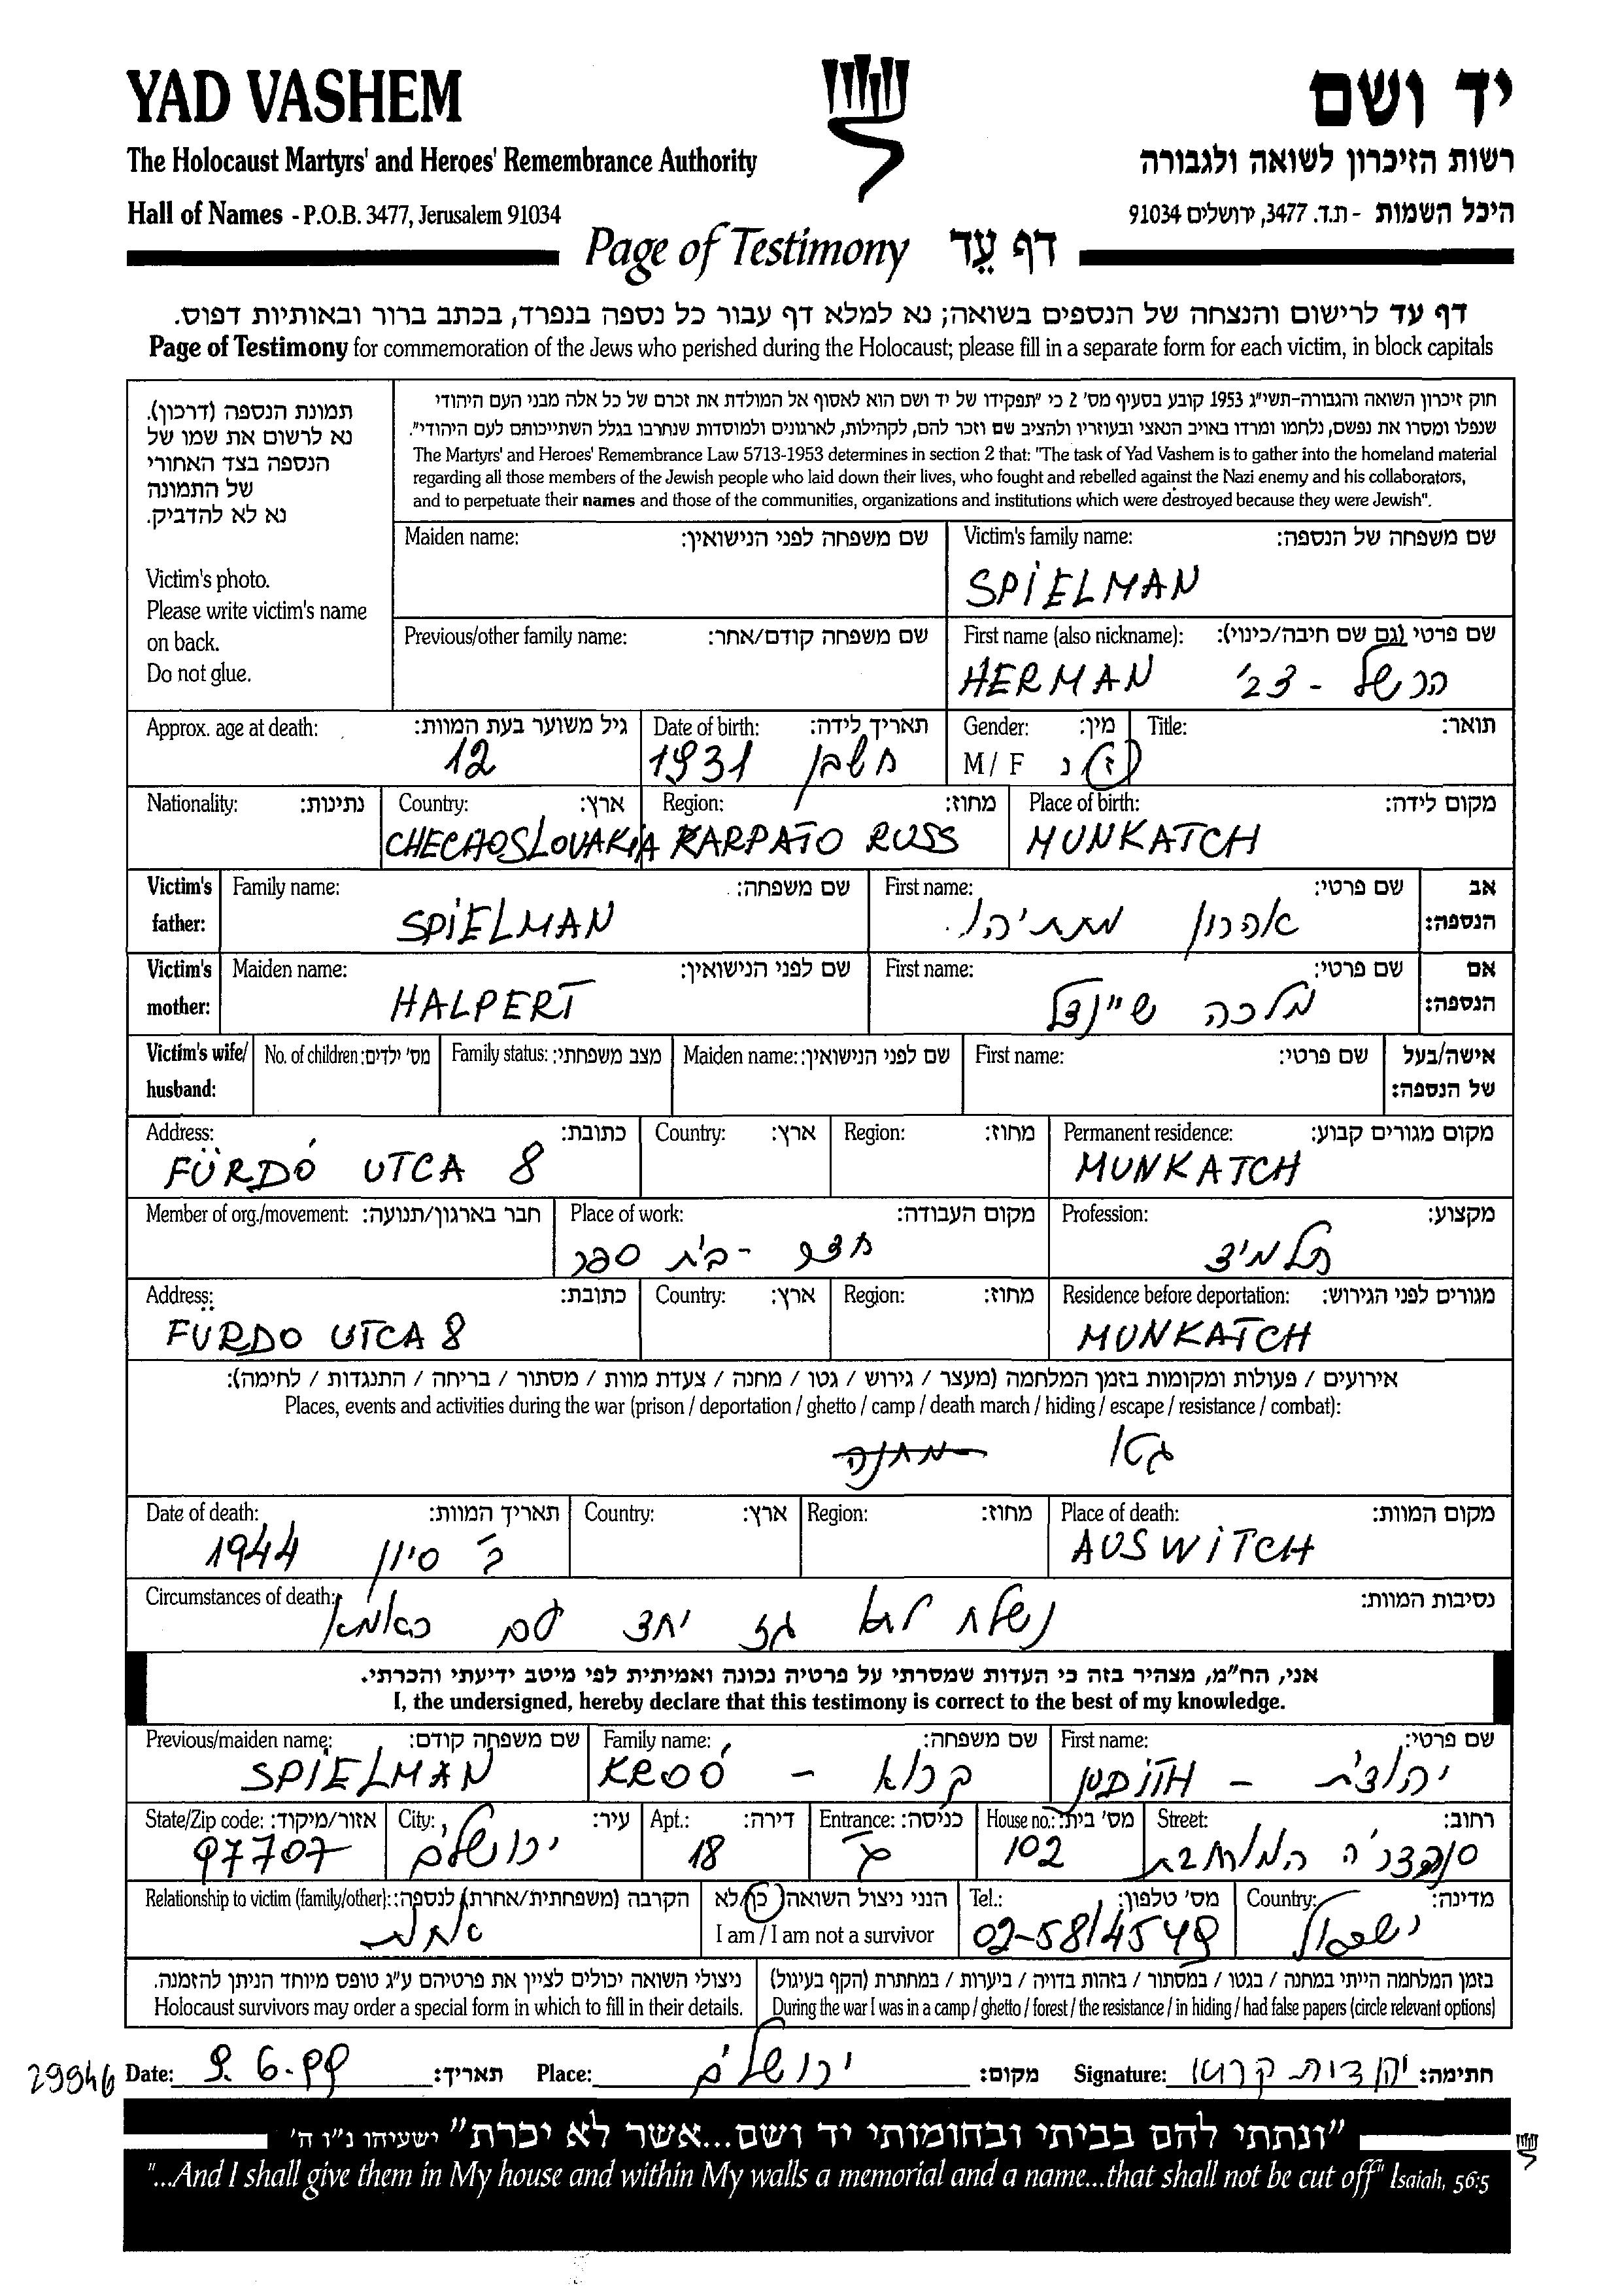 YAD VASHEM
יד ושם
The Holocaust Martyrs' and Heroes' Remembrance Authority
רשות הזיכרון לשואה ולגבורה
Hall of Names - P.O.B. 3477, Jerusalem 91034
היכל השמות - ת.ד. 3477, ירושלים 91034
Page of Testimony דף עֵד
דף עד לרישום והנצחה של הנספים בשואה; נא למלא דף עבור כל נספה בנפרד, בכתב ברור ובאותיות דפוס.
Page of Testimony for commemoration of the Jews who perished during the Holocaust; please fill in a separate form for each victim, in block capitals
תמונת הנספה (דרכון).
נא לרשום את שמו של
הנספה בצד האחורי
של התמונה
נא לא להדביק.
Victim's photo.
Please write victim's name
on back.
Do not glue.
חוק זיכרון השואה והגבורה-תשי"ג 1953 קובע בסעיף מס' 2 כי "תפקידו של יד ושם הוא לאסוף אל המולדת את זכרם של כל אלה מבני העם היהודי
שנפלו ומסרו את נפשם, נלחמו ומרדו באויב הנאצי ובעוזריו ולהציב שם וזכר להם, לקהילות, לארגונים ולמוסדות שנחרבו בגלל השתייכותם לעם היהודי".
The Martyrs' and Heroes' Remembrance Law 5713-1953 determines in section 2 that: "The task of Yad Vashem is to gather into the homeland material
regarding all those members of the Jewish people who laid down their lives, who fought and rebelled against the Nazi enemy and his collaborators,
and to perpetuate their names and those of the communities, organizations and institutions which were destroyed because they were Jewish".
Maiden name: שם משפחה לפני הנישואין:
Victim's family name: שם משפחה של הנספה:
SPIELMAN
Previous/other family name: שם משפחה קודם/אחר:
First name (also nickname): שם פרטי (גם שם חיבה/כינוי):
HERMAN הרשל - צבי
Approx. age at death: גיל משוער בעת המוות:
12
Date of birth: תאריך לידה:
1931 חשבן
Gender: מין:
M / F ז / נ
Title: תואר:
Nationality: נתינות:
Country: ארץ:
CHECHOSLOVAKIA
Region: מחוז:
KARPATO RUSS
Place of birth: מקום לידה:
MUNKATCH
Victim's father: Family name: שם משפחה:
SPIELMAN
First name: שם פרטי: אב הנספה:
אהרון מתתיהו.
Victim's mother: Maiden name: שם לפני הנישואין:
HALPERT
First name: שם פרטי: אם הנספה:
מלכה שיינדל
Victim's wife/ husband: No. of children: מס' ילדים: Family status: מצב משפחתי: Maiden name: שם לפני הנישואין: First name: שם פרטי: אישה/בעל של הנספה:
Address: כתובת:
FÜRDÓ UTCA 8
Country: ארץ: Region: מחוז:
Permanent residence: מקום מגורים קבוע:
MUNKATCH
Member of org./movement: חבר בארגון/תנועה:
Place of work: מקום העבודה:
חדר - בית ספר
Profession: מקצוע:
תלמיד
Address: כתובת:
FÜRDO UTCA 8
Country: ארץ: Region: מחוז:
Residence before deportation: מגורים לפני הגירוש:
MUNKATCH
אירועים / פעולות ומקומות בזמן המלחמה (מעצר / גירוש / גטו / מחנה / צעדת מוות / מסתור / בריחה / התנגדות / לחימה):
Places, events and activities during the war (prison / deportation / ghetto / camp / death march / hiding / escape / resistance / combat):
גטו מחנה
Date of death: תאריך המוות:
1944 ב' סיון
Country: ארץ: Region: מחוז:
Place of death: מקום המוות:
AUSWITCH
Circumstances of death: נסיבות המוות:
נשלח לגז יחד עם
אני, הח"מ, מצהיר בזה כי העדות שמסרתי על פרטיה נכונה ואמיתית לפי מיטב ידיעתי והכרתי.
I, the undersigned, hereby declare that this testimony is correct to the best of my knowledge.
Previous/maiden name: שם משפחה קודם:
SPIELMAN
Family name: שם משפחה:
KROÓ - קרוא
First name: שם פרטי:
JUDITH - יהודית
State/Zip code: אזור/מיקוד:
97707
City: עיר:
ירושלים
Apt.: דירה:
18
Entrance: כניסה:
House no.: מס' בית:
102
Street: רחוב:
סנהדריה המורחבת
Relationship to victim (family/other): הקרבה (משפחתית/אחרת) לנספה:
אחות
הנני ניצול השואה כן/לא
I am / I am not a survivor
Tel.: מס' טלפון:
02-5814549
Country: מדינה:
ישראל
ניצולי השואה יכולים לציין את פרטיהם ע"ג טופס מיוחד הניתן להזמנה.
Holocaust survivors may order a special form in which to fill in their details.
בזמן המלחמה הייתי במחנה / בגטו / במסתור / בזהות בדויה / ביערות / במחתרת (הקף בעיגול)
During the war I was in a camp / ghetto / forest / the resistance / in hiding / had false papers (circle relevant options)
29846 Date: 9.6.99 תאריך: Place: ירושלים מקום: Signature: יהודית קרוא חתימה:
"ונתתי להם בביתי ובחומותי יד ושם...אשר לא יכרת" ישעיהו נ"ו ה'
"...And I shall give them in My house and within My walls a memorial and a name...that shall not be cut off" Isaiah, 56:5